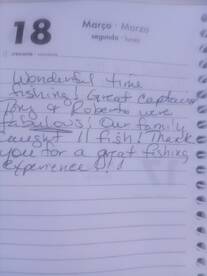 18
Março · Marzo
segunda · lunes
Wonderful time
fishing! Great captains
Tony & Roberto were
fabulous! Our family
caught 11 fish! Thank
you for a great fishing
experience!!